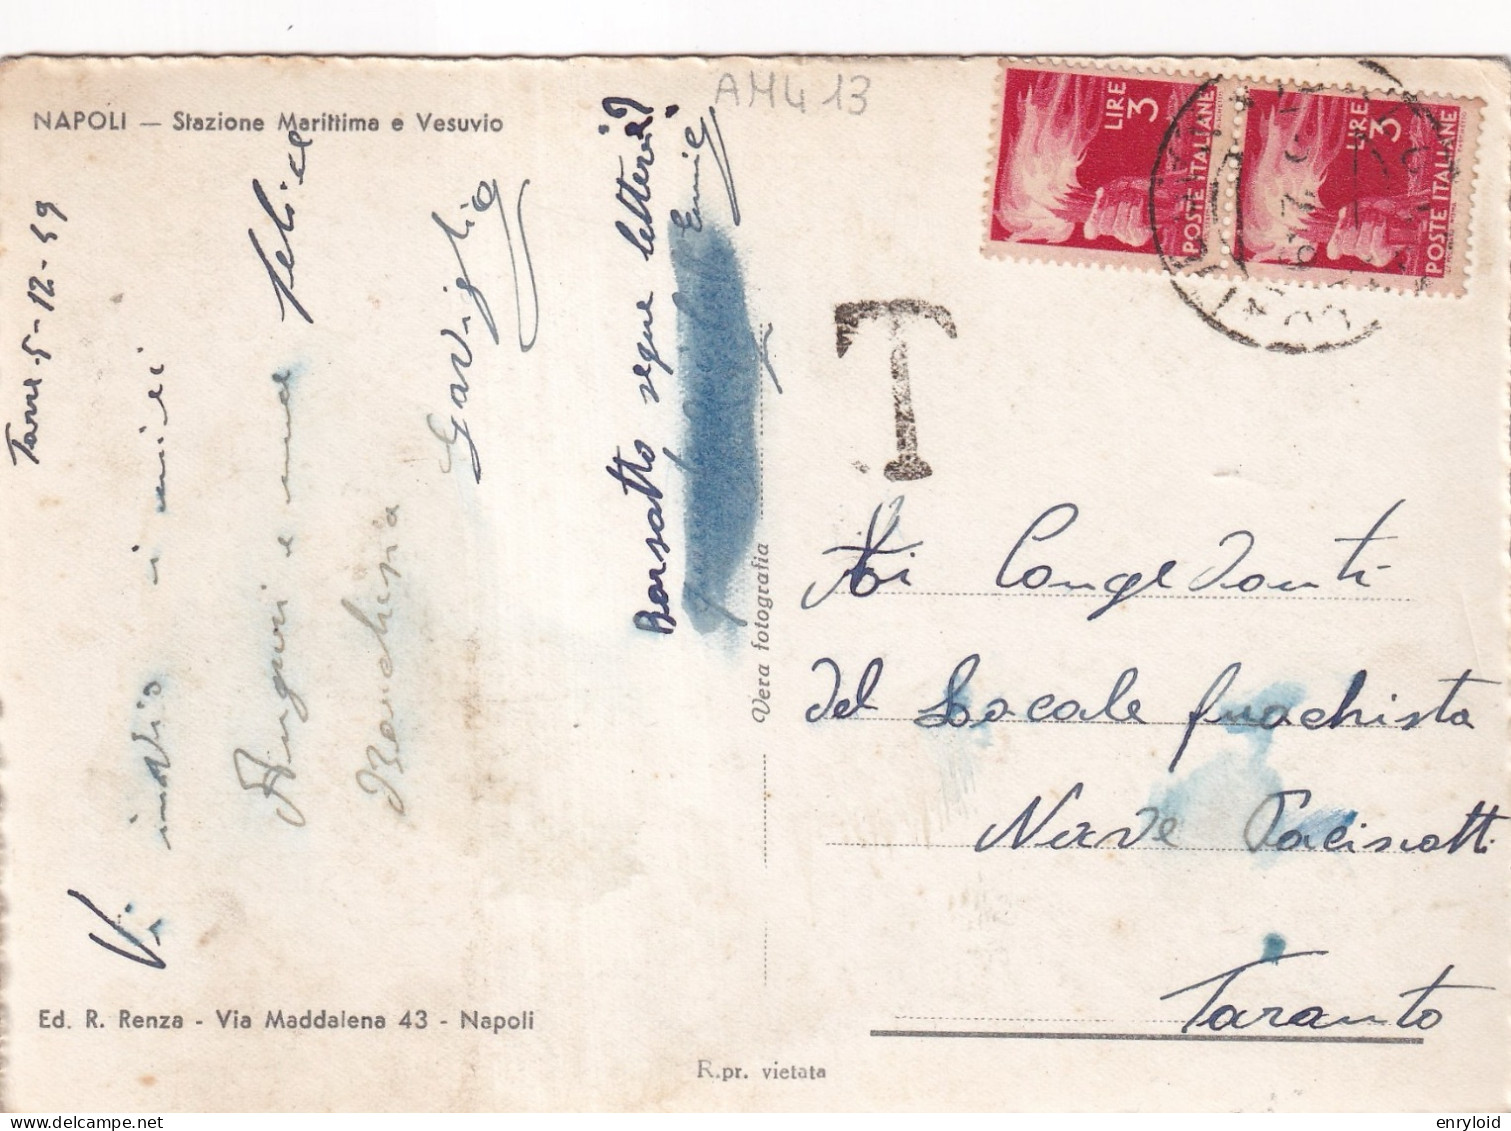 NAPOLI — Stazione Marittima e Vesuvio
AM4 13
Torre. 5-12-49
Vi invio i miei
Auguri e una felice
Gaviglia
Borsatto segue lettera
LIRE 3
POSTE ITALIANE
LIRE 3
POSTE ITALIANE
T
Ai Congedanti
del Locale fuochista
Nave Pacinotti
Taranto
Vera fotografia
Ed. R. Renza - Via Maddalena 43 - Napoli
R.pr. vietata
enryloid